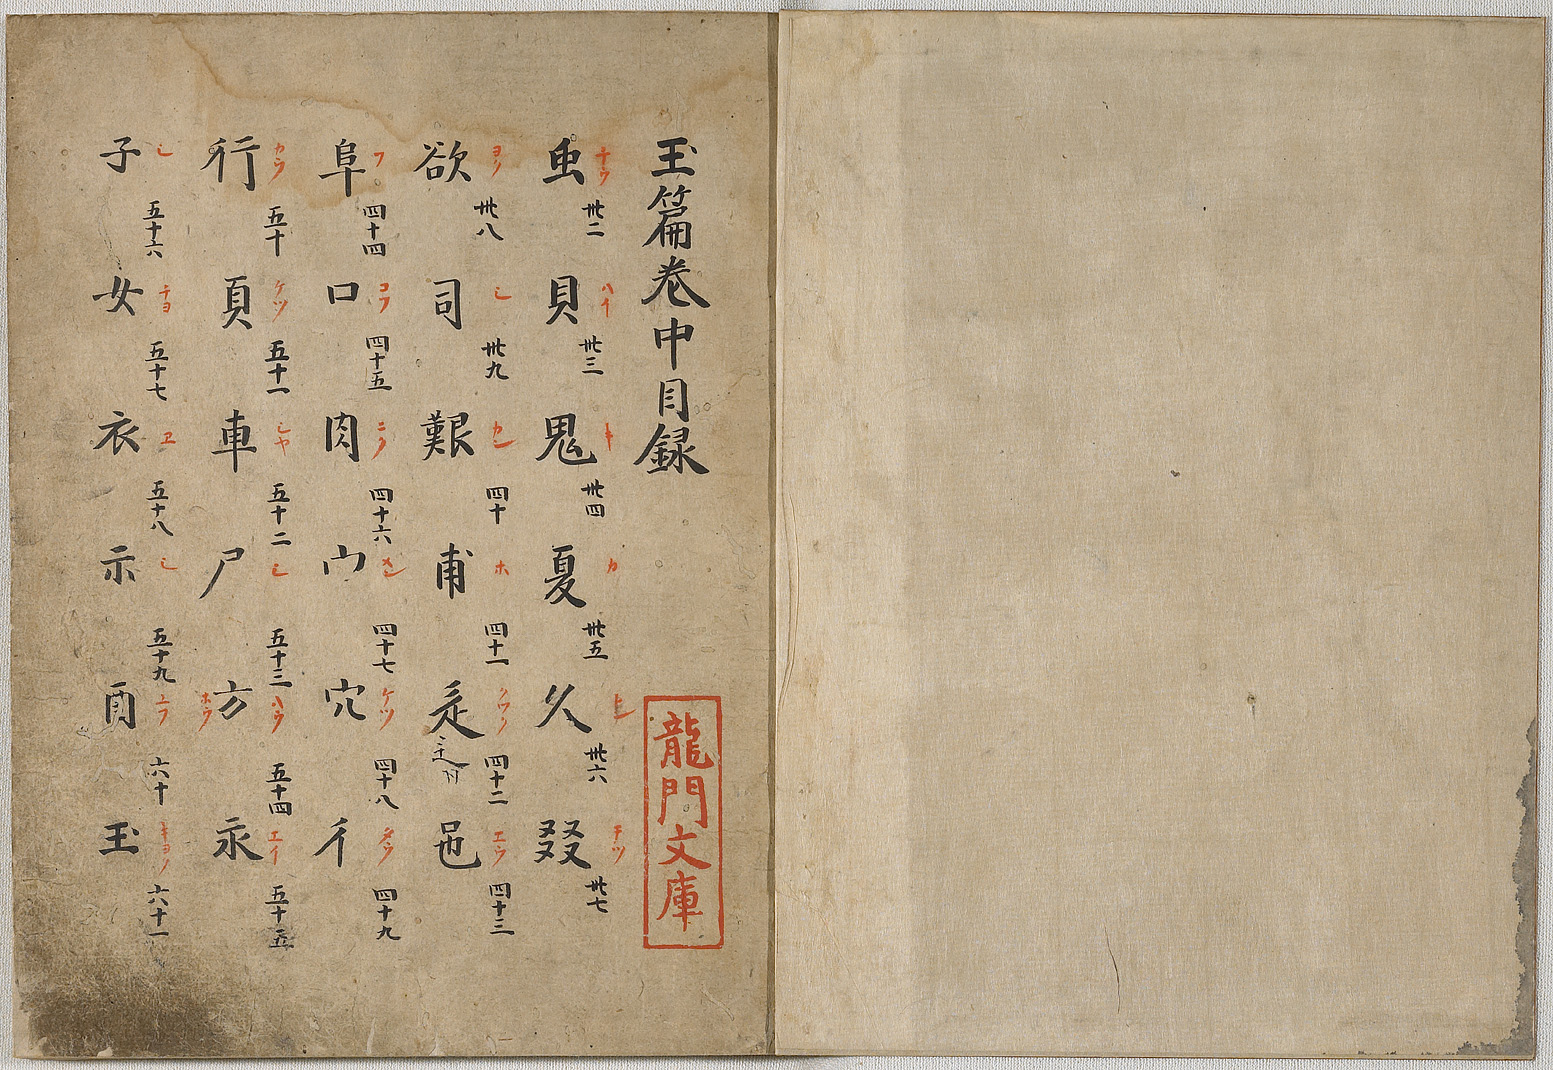 玉篇卷中目録
龍門文庫
虫 チウ 卅二 貝 ハイ 卅三 鬼 キ 卅四 夏 カ 卅五 久 卅六 叕 テツ 卅七
欲 ヨク 卅八 司 シ 卅九 艱 カン 四十 甫 ホ 四十一 辵 四十二 邑 エウ 四十三
阜 フ 四十四 口 コウ 四十五 肉 ニク 四十六 宀 メン 四十七 穴 ケツ 四十八 彳 四十九
行 カウ 五十 頁 ケツ 五十一 車 シヤ 五十二 尸 シ 五十三 方 ハウ ホウ 五十四 永 エイ 五十五
子 シ 五十六 女 チヨ 五十七 衣 ヱ 五十八 示 シ 五十九 酉 ユウ 六十 玉 キヨク 六十一